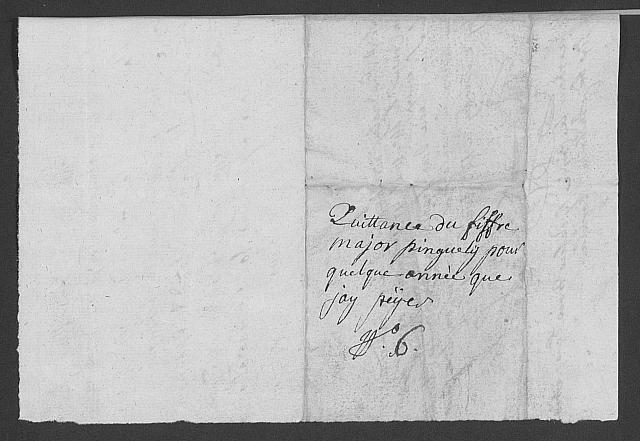 Quittance du fiffre
major pinguely pour
quelque année que
jay péyer
No. 6.